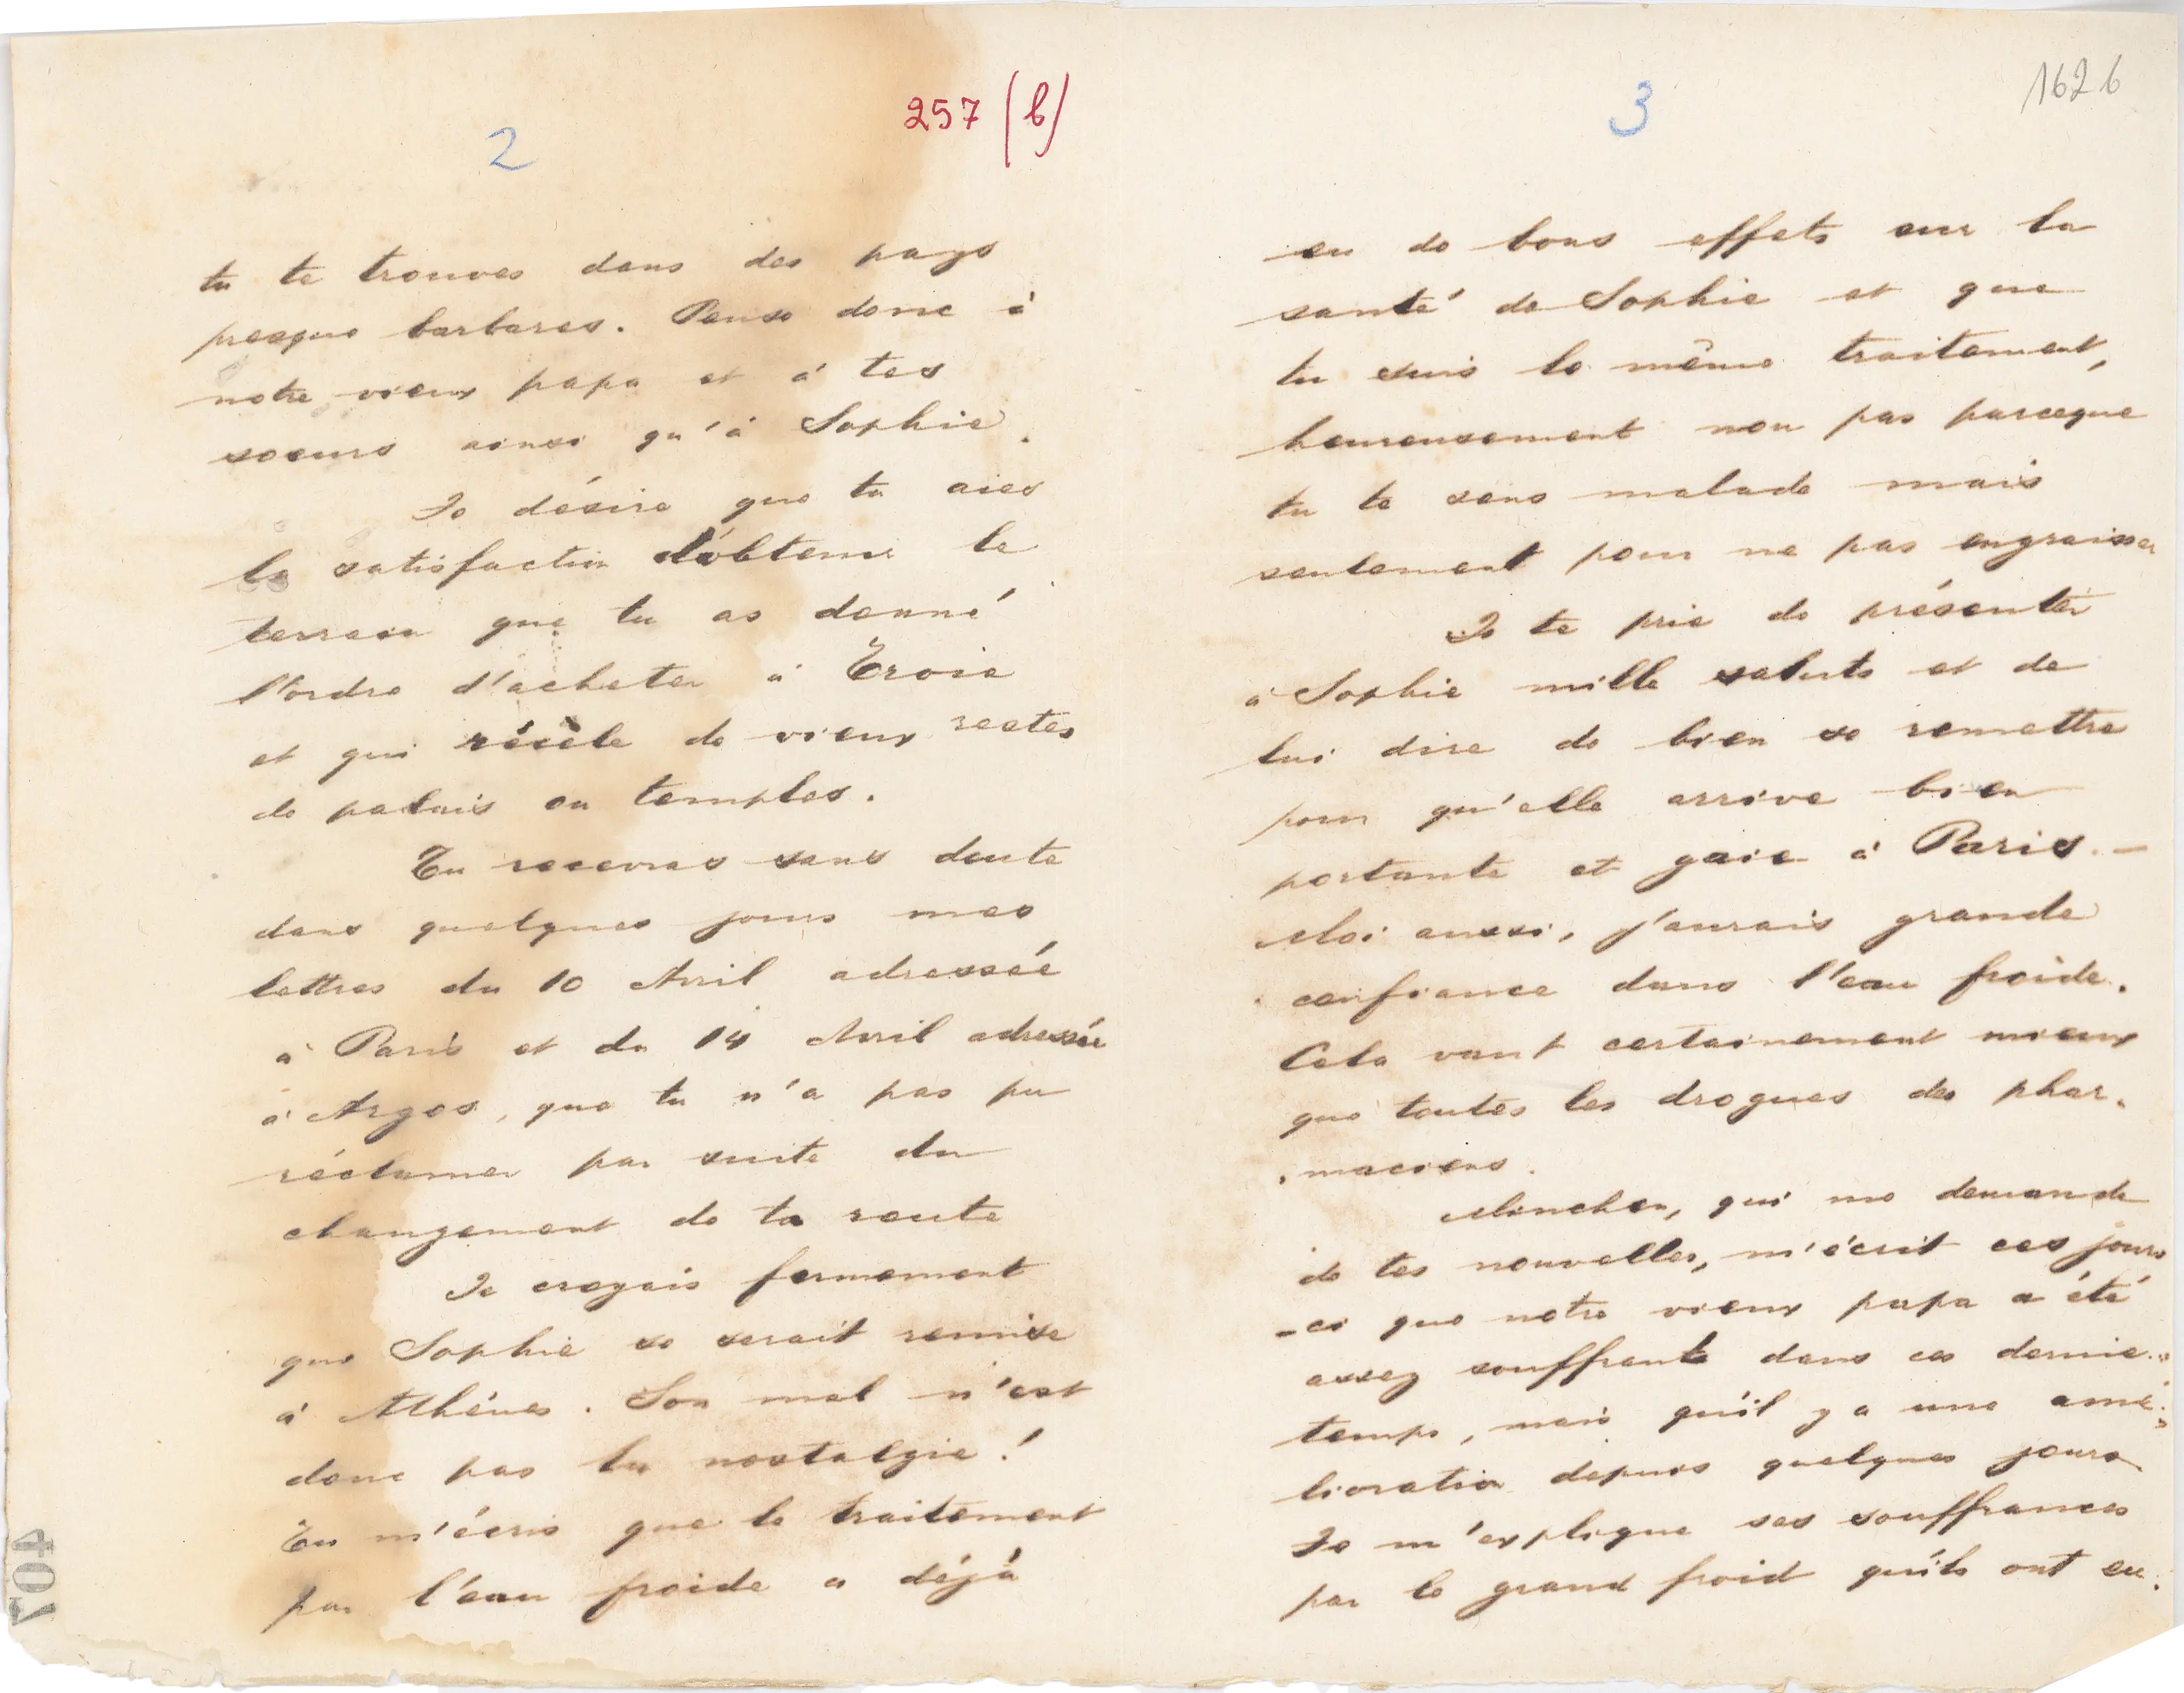 257 (b)
2
tu te trouves dans des pays
presque barbares. Pense donc à
notre vieux papa et à tes
soeurs ainsi qu'à Sophie.
Je désire que tu aies
la satisfaction d'obtenir le
terrain que tu as donné
l'ordre d'acheter à Troie
et qui récèle de vieux restes
de palais ou temples.
Tu recevras sans doute
dans quelques jours mes
lettres du 10 Avril adressée
à Paris et du 14 Avril adressée
à Argos, que tu n'a pas pu
réclamer par suite du
changement de ta route
Je croyais fermement
que Sophie se serait remise
à Athènes. Son mal n'est
donc pas la nostalgie!
Tu m'écris que le traitement
par l'eau froide a déjà
407
1626
3
eu de bons effets sur la
santé de Sophie et que
tu suis le même traitement,
heureusement non pas parceque
tu te sens malade mais
seulement pour ne pas engraisser
Je te prie de présenter
à Sophie mille saluts et de
lui dire de bien se remettre
pour qu'elle arrive bien
portante et gaie à Paris. —
Moi aussi, j'aurais grande
confiance dans l'eau froide.
Cela vaut certainement mieux
que toutes les drogues des phar-
maciens.
Minchen, qui me demande
de tes nouvelles, m'écrit ces jours
-ci que notre vieux papa a été
assez souffrant dans ces dernie..
temps, mais qu'il y a une amé-
lioration depuis quelques jours
Je m'explique ses souffrances
par le grand froid qu'ils ont eu.